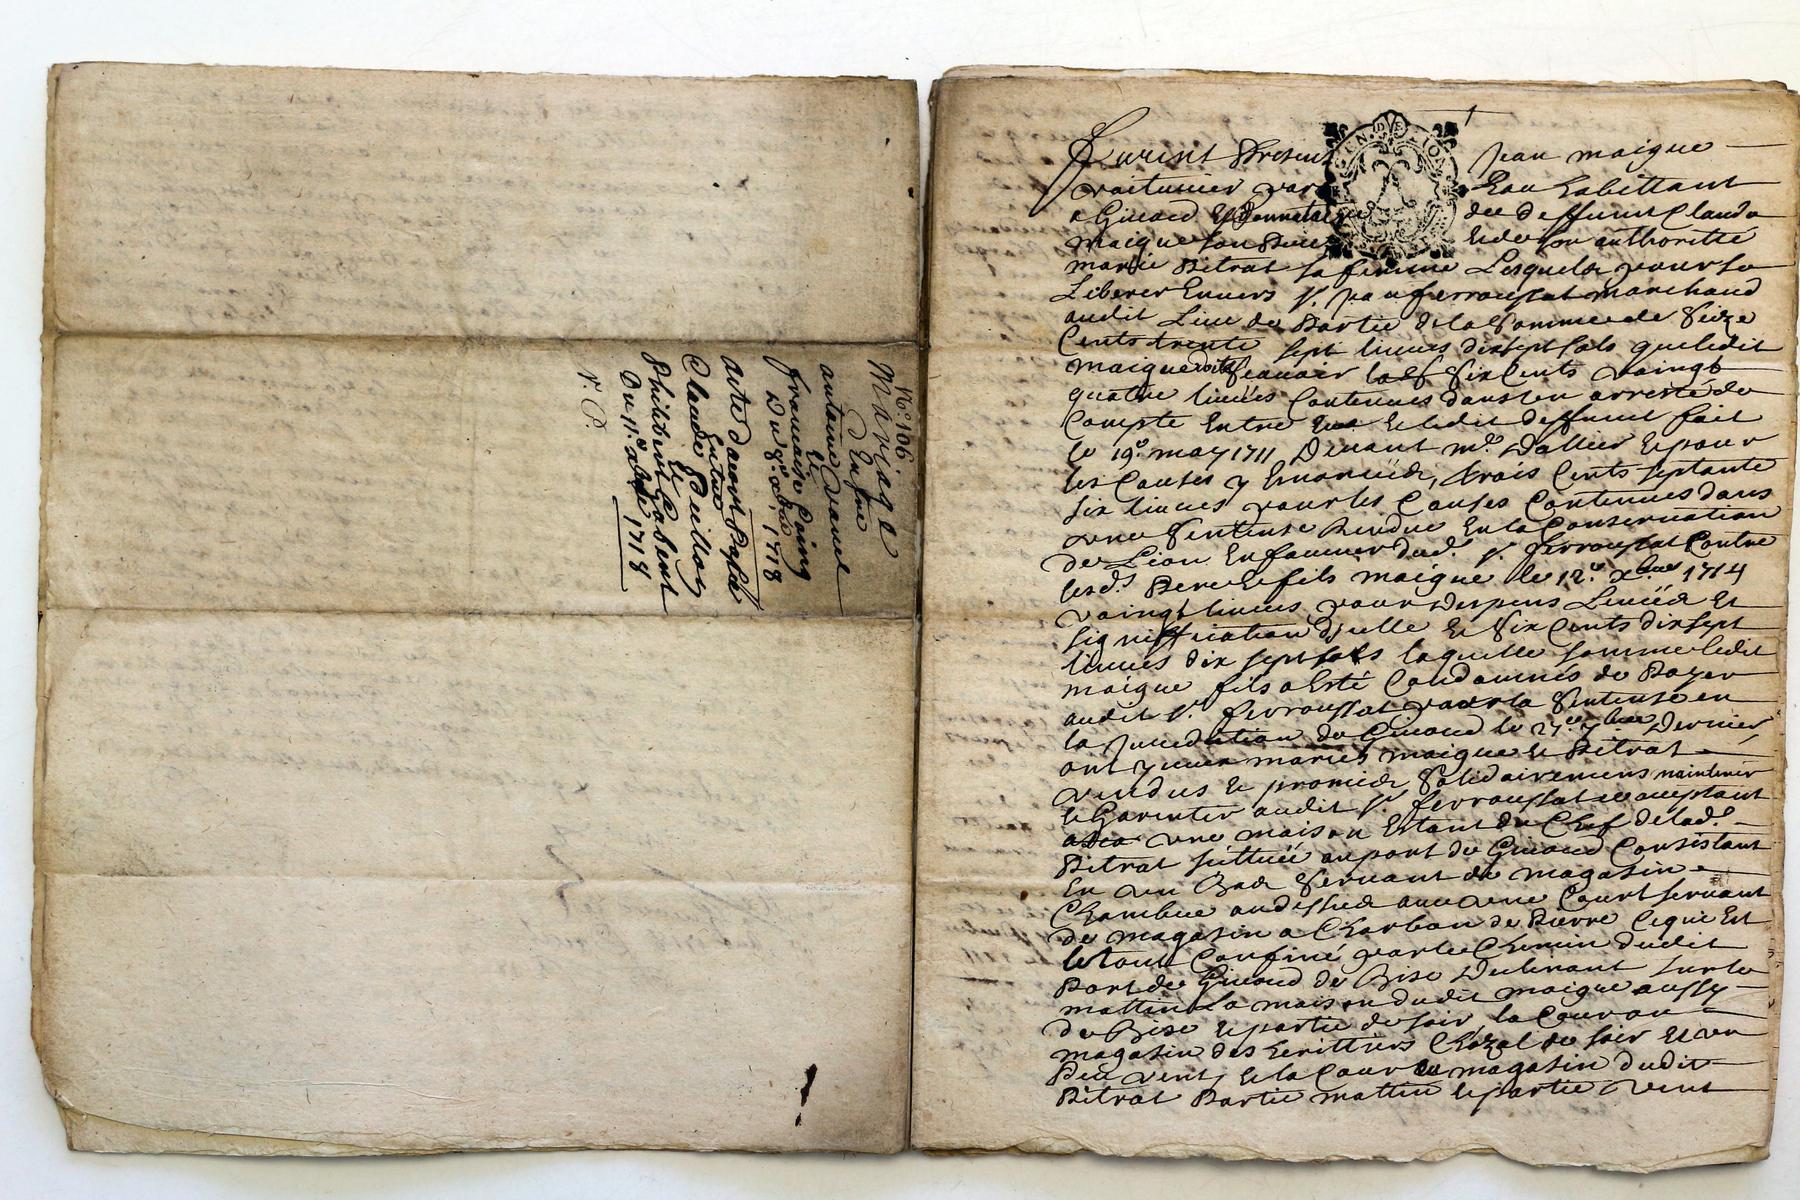 N.° 106
Mariage
D'Entre
antoine
Et
francoise Coing
Du 8.e xbre 1718
acte dacort Passé
Entre
Claude Peillon
Et
Philibert Gabert
Du 11.e xbre 1718
r. P.
1
Furent Present Jean maigue
voiturier par Eau habittant
a Giuord Et donnataire de deffunt Claude
maigue son Pere Et de son authoritté
marie Pitrat sa femme Lesquels pour se
Liberer Enuers Sr. ferroussat marchand
audit Lieu de Partie de la Somme de Seize
Cents trente sept liures dix sept sols que ledit
maigue doit scauoir six Cents vaingt
quatre liures Contenues dans un arresté de
Compte Entre Et ledit deffunt fait
le 19.e may 1711 Deuant me. Dallier Et pour
les Causes y Enoncées, trois Cents septante
six liures pour les Causes Contenues dans
une Sentense Rendue En la Conseruation
de Lion En faueur dud. Sr. ferroussat Contre
lesd. Pere Et fils maigue le 12.e xbre 1714
vaingt liures pour despens Et
signiffication d'jcelle Et Six Cents dix sept
liures dix sept sols laquelle somme ledit
maigue fils a Esté Condamné de Payer
audit Sr. ferroussat par la Sentense en
la Jurediction de Giuord le 27.e 7bre Dernier
ont maries maigue Et Pitrat
vendus Et promis Solidairement maintenir
Et Garentir audit Sr. ferroussat acceptant
une maison Estant du Chef de lad.
Pitrat scittuée au port de Giuord Consistant
En un Bas Seruant de magasin
Chambre au dessus auec une Court seruant
de magasin a Charbon de Pierre Ce qui Est
le tout Confiné par le Chemin dudit
Port de Giuord de Bise Declinant sur le
mattin La maison dudit maigue aussy
de Bise Et partie de soir, la Cour ou
magasin des heritiers Chazal de soir Et un
Peu vent, Et la Cour magasin dudit
Pitrat Partie mattin Et partie vent